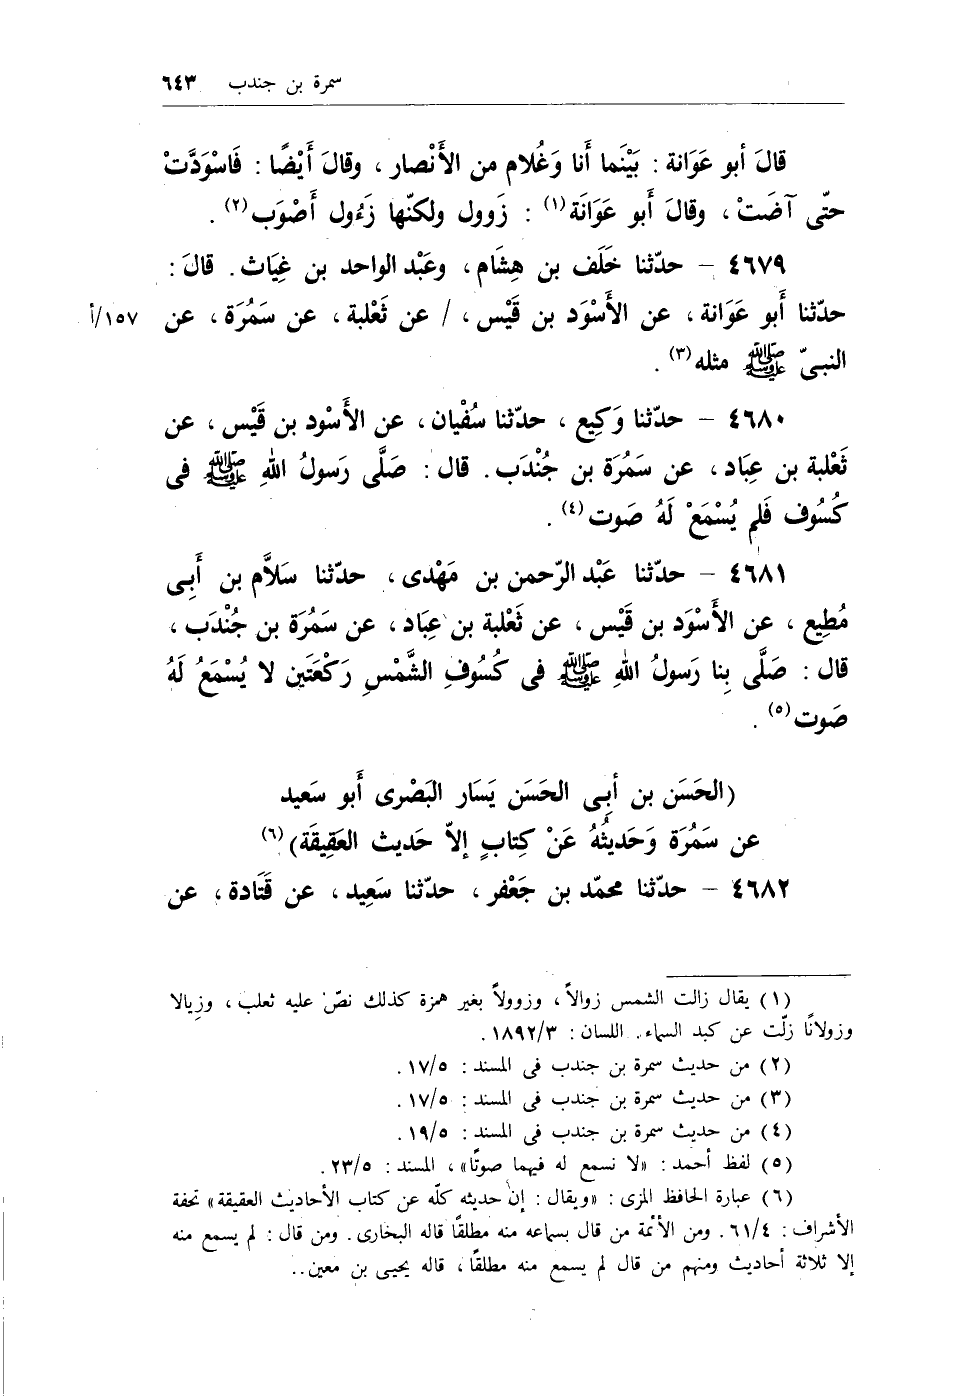 سمرة بن جندب ٦٤٣
قالَ أبو عَوَانة : بَيْنَما أنا وَغُلام من الأَنْصار ، وقالَ أَيْضًا : فَاسْوَدَّتْ
حتّى آضَتْ ، وقالَ أَبو عَوَانَة(١) : زَوول ولكنّها زَءُول أَصْوَب(٢) .
٤٦٧٩ – حدّثنا خَلَف بن هِشَام ، وعَبْد الواحد بن غِيَاث . قالَ :
حدّثنا أَبو عَوَانة ، عن الأَسْوَد بن قَيْس ، / عن ثَعْلبة ، عن سَمُرَة ، عن ١٥٧/أ
النبىّ ﷺ مثله(٣) .
٤٦٨٠ – حدّثنا وَكِيع ، حدّثنا سُفْيان ، عن الأَسْوَد بن قَيْس ، عن
ثَعْلبة بن عِبَاد ، عن سَمُرَة بن جُنْدَب . قال : صَلَّى رَسولُ اللهِ ﷺ فى
كُسُوف فَلم يُسْمَعْ لَهُ صَوت(٤) .
٤٦٨١ – حدّثنا عَبْد الرّحمن بن مَهْدى ، حدّثنا سَلاَّم بن أَبِى
مُطِيع ، عن الأَسْوَد بن قَيْس ، عن ثَعْلبة بن عِبَاد ، عن سَمُرَة بن جُنْدَب ،
قال : صَلَّى بِنا رَسولُ اللهِ ﷺ فى كُسُوفِ الشَّمْسِ رَكْعَتَين لا يُسْمَعُ لَهُ
صَوت(٥) .
(الحَسَن بن أبِى الحَسَن يَسَار البَصْرى أَبو سَعيد
عن سَمُرَة وَحَديثُهُ عَنْ كِتابٍ إلاّ حَديث العَقِيقَة)(٦)
٤٦٨٢ – حدّثنا محمّد بن جَعْفر ، حدّثنا سَعِيد ، عن قَتَادة ، عن
(١) يقال زالت الشمس زوالاً ، وزوولاً بغير همزة كذلك نصّ عليه ثعلب ، وزيالا
وزولانًا زلّت عن كبد السماء . اللسان : ١٨٩٢/٣ .
(٢) من حديث سمرة بن جندب فى المسند : ١٧/٥ .
(٣) من حديث سمرة بن جندب فى المسند : ١٧/٥ .
(٤) من حديث سمرة بن جندب فى المسند : ١٩/٥ .
(٥) لفظ أحمد : «لا نسمع له فيهما صوتًا» ، المسند : ٢٣/٥ .
(٦) عبارة الحافظ المزى : «ويقال : إن حديثه كلّه عن كتاب الأحاديث العقيقة» تحفة
الأشراف : ٦١/٤ . ومن الأئمة من قال بسماعه منه مطلقًا قاله البخارى . ومن قال : لم يسمع منه
إلا ثلاثة أحاديث ومنهم من قال لم يسمع منه مطلقًا ، قاله يحيى بن معين ..